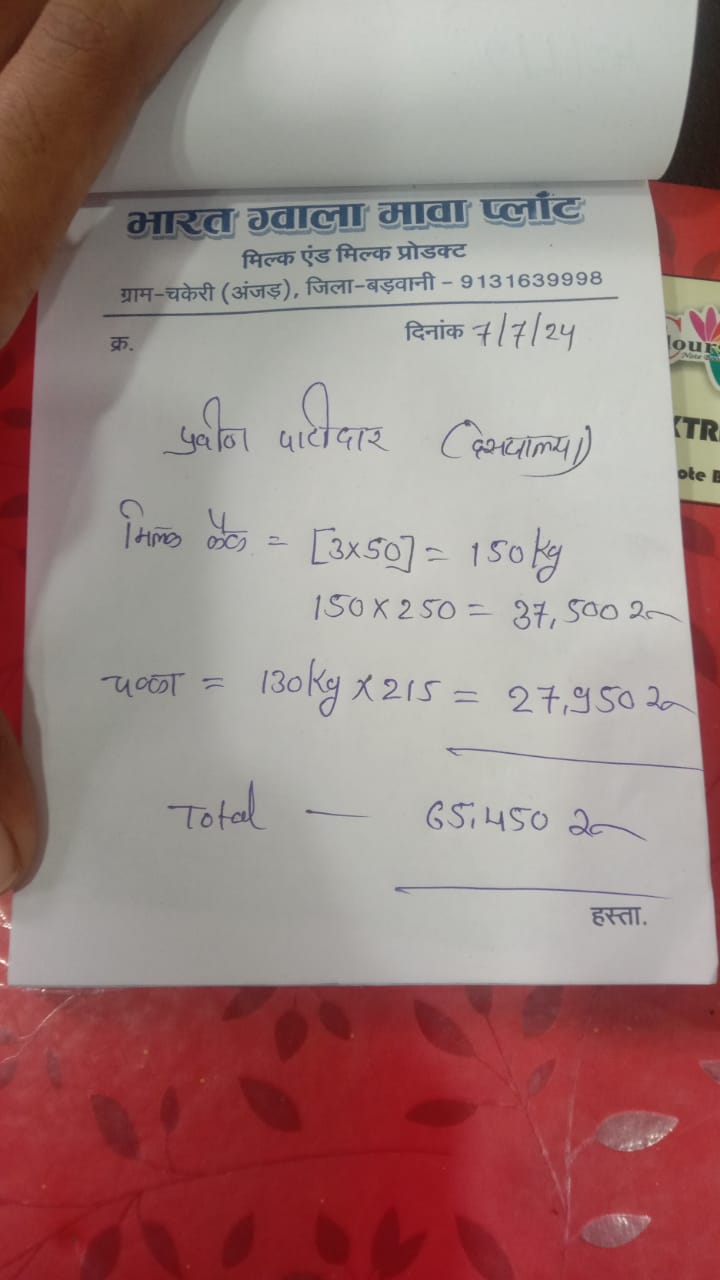 भारत ग्वाला मावा प्लाँट
मिल्क एंड मिल्क प्रोडक्ट
ग्राम-चकेरी (अंजड़), जिला-बड़वानी - 9131639998
क्र. दिनांक 7/7/24
प्रवीण पाटीदार
मिल्क कैक = [3x50] = 150kg
150 x 250 = 37,500 रु
चक्का = 130kg x 215 = 27,950 रु
Total — 65,450 रु
हस्ता.